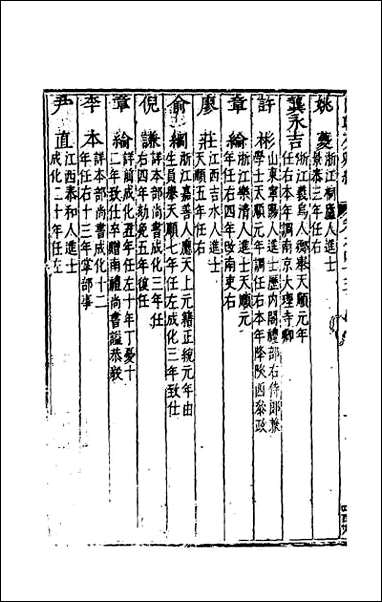 姚夔
浙江桐廬人進士
景泰三年任右
龔永吉
浙江義烏人鄉舉天順元年
任右本年調南京大理寺卿
許彬
山東寧陽人進士歷內閣禮部右侍郎兼
學士天順元年調任右本年降陝西參政
章綸
浙江樂清人進士天順元
年任右四年改南吏右
廖莊
江西吉水人進士
天順五年任右
俞綱
浙江嘉善人應天上元籍正統元年由
生員舉天順七年任左成化三年致仕
倪謙
詳本部尚書成化三年任
右四年劾免五年復任
章綸
詳前成化五年任左十年丁憂十
二年致仕卒贈南禮尚書諡恭毅
李本
詳本部尚書成化十二
年任右十三年掌部事
尹直
江西泰和人進士
成化二十年任左